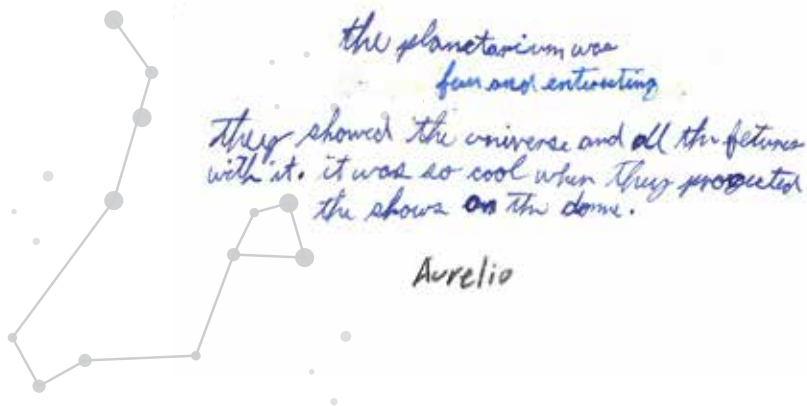 the planetarium was
fun and entiresting
they showed the universe and all the fetures
with it. it was so cool when they progected
the shows on the dome.
Aurelio